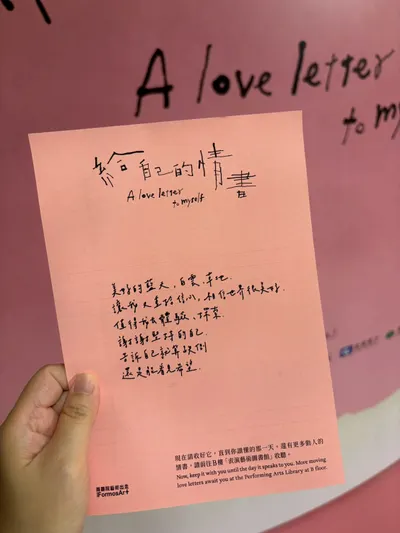 A love letter
to my
給自己的情書
A love letter
to myself
美好的藍天、白雲、草地.
讓我又重拾信心,相信世界很美好.
值得我去體驗、探索.
謝謝堅持的自己.
告訴自己就算跌倒
還是能看見希望.
現在請收好它,直到你讀懂的那一天。還有更多動人的
情書,請前往B樓「表演藝術圖書館」收聽。
Now, keep it with you until the day it speaks to you. More moving
love letters await you at the Performing Arts Library at B floor.
藝術出走
iFormosArt